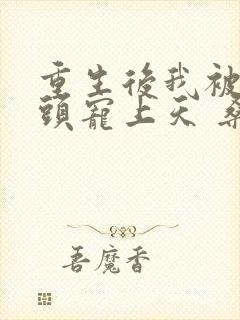 重生後我被
頭寵上天
吾魔香